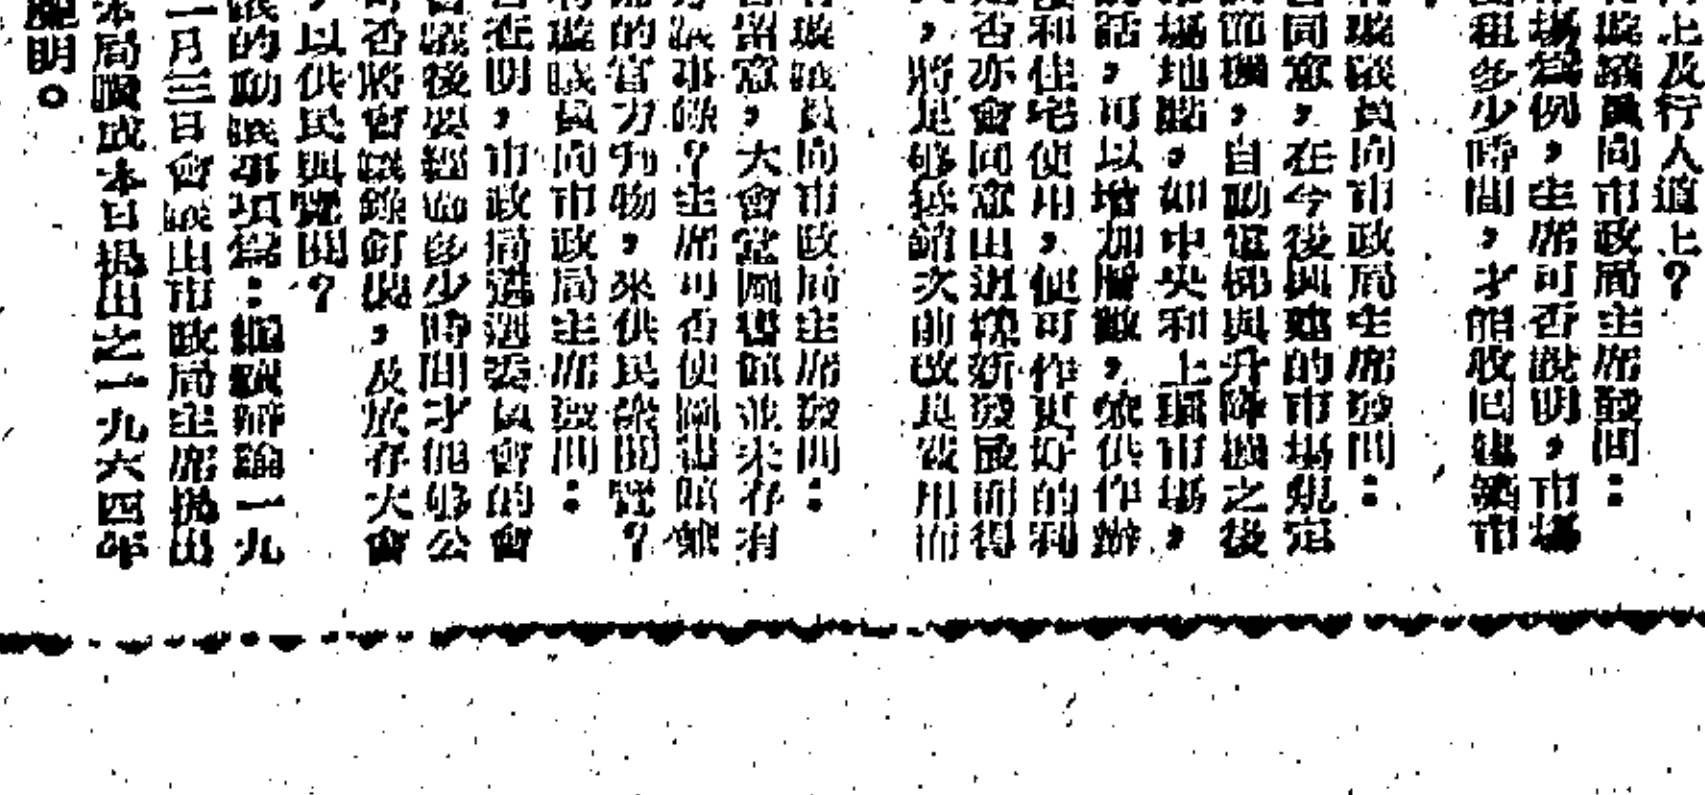 上及行人道上？
璇議員向市政局主席發問：
場為例，主席可否說明，市場
租多少時間，才能收回建築市
璇議員向市政局主席發問：
同意，在今後興建的市場規定
節機，自動電梯與升降機之後
場地點，如中央和上環市場，
話，可以增加層數，俾供作辦
和住宅使用，便可作更好的利
否亦會同意由這樣新發展而得
，將足够抵銷次前改良費用而
璇議員向市政局主席發問：
留意，大會堂圖書館並未存有
議事錄？主席可否使圖書館
的官方刊物，來供民衆閱覽？
璇議員向市政局主席發問：
在明，市政局遴選委員會的會
議後要經過多少時間才能够公
否將會議錄釘裝，及放存大會
，以供民與覽閱？
議的動議事項為：繼續辯論一九
一月三日會議由市政局主席提出
本局贊成本日提出之一九六四年
聲明。